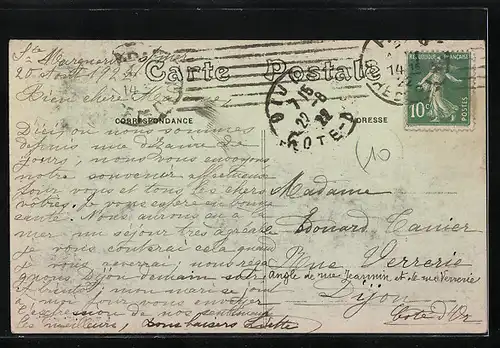 Ste Marguerite s/mer
20 août 1922
Bien chère Madame,
Carte Postale
CORRESPONDANCE
ADRESSE
RÉPUBLIQUE FRANÇAISE
10c
POSTES
7-15
22-8
22
COTE-D'OR
(10
nous sommes
depuis une dizaine de
jours, nous vous envoyons
notre souvenir affectueux
pour vous et tous les chers
vôtres. Je vous espère en bonne
santé. Nous aurons eu à la
mer un séjour très agréable
je vous conterai cela quand
je vous reverrai, nous
Dijon demain soir
mon mari se joint
à moi pour vous envoyer
l'expression de nos sentiments
les meilleurs, bons baisers
Madame
Edouard
Rue Verrerie
angle de rue Jeannin et de rue Verrerie
Dijon
Côte d'Or